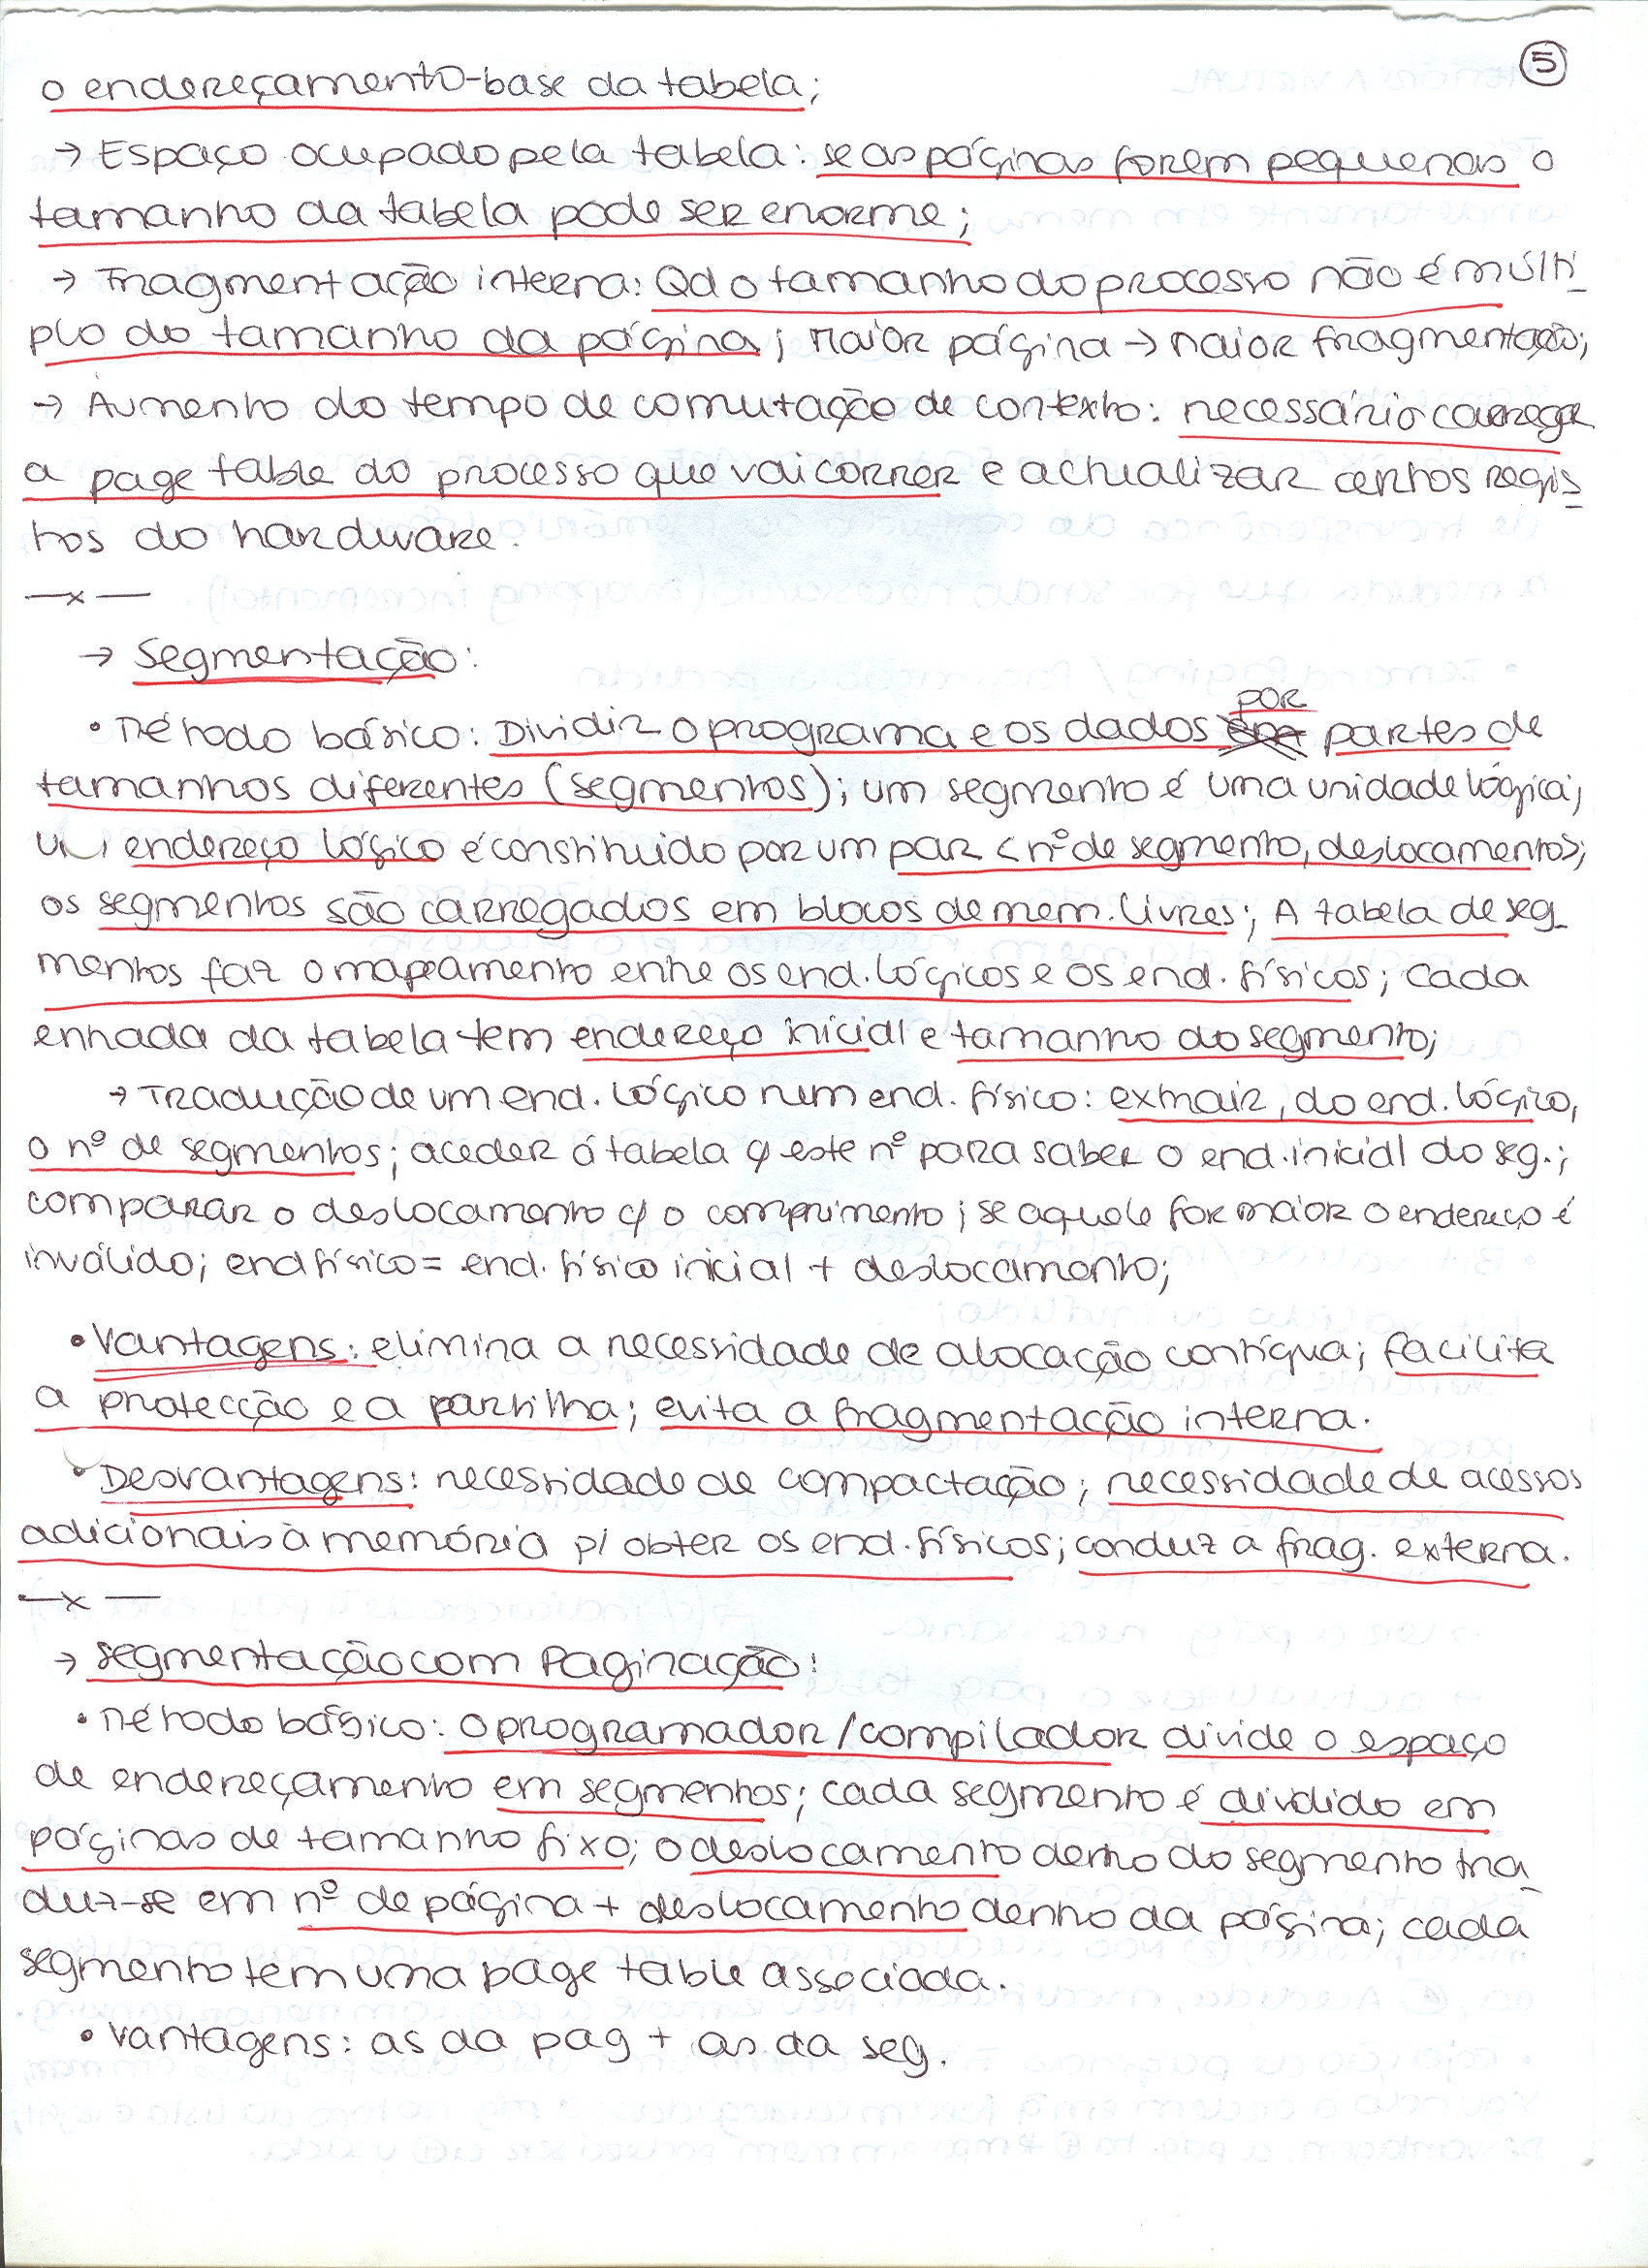 5
o endereçamento-base da tabela;
→ Espaço ocupado pela tabela: se as páginas forem pequenas o
tamanho da tabela pode ser enorme;
→ Fragmentação interna: Qd o tamanho do processo não é múlti
plo do tamanho da página; Maior página → Maior fragmentação;
→ Aumento do tempo de comutação de contexto: necessário carregar
a page table do processo que vai correr e actualizar certos regis
tos do hardware.
—x—
→ Segmentação:
• Método básico: Dividir o programa e os dados por partes de
tamanhos diferentes (segmentos); um segmento é uma unidade lógica;
um endereço lógico é constituído por um par <nº de segmento, deslocamento>;
os segmentos são carregados em blocos de mem. livres; A tabela de seg
mentos faz o mapeamento entre os end. lógicos e os end. físicos; cada
entrada da tabela tem endereço inicial e tamanho do segmento;
→ Tradução de um end. lógico num end. físico: extrair, do end. lógico,
o nº de segmentos; aceder á tabela c/ este nº para saber o end. inicial do seg.;
comparar o deslocamento c/ o comprimento; se aquele for maior o endereço é
inválido; end físico = end. físico inicial + deslocamento;
• Vantagens: elimina a necessidade de alocação contígua; facilita
a protecção e a partilha; evita a fragmentação interna.
• Desvantagens: necessidade de compactação; necessidade de acessos
adicionais à memória p/ obter os end. físicos; conduz a frag. externa.
—x—
→ Segmentação com Paginação:
• Método básico: o programador/compilador divide o espaço
de endereçamento em segmentos; cada segmento é dividido em
páginas de tamanho fixo; o deslocamento dentro do segmento tra
duz-se em nº de página + deslocamento dentro da página; cada
segmento tem uma page table associada.
• Vantagens: as da pag + as da seg.